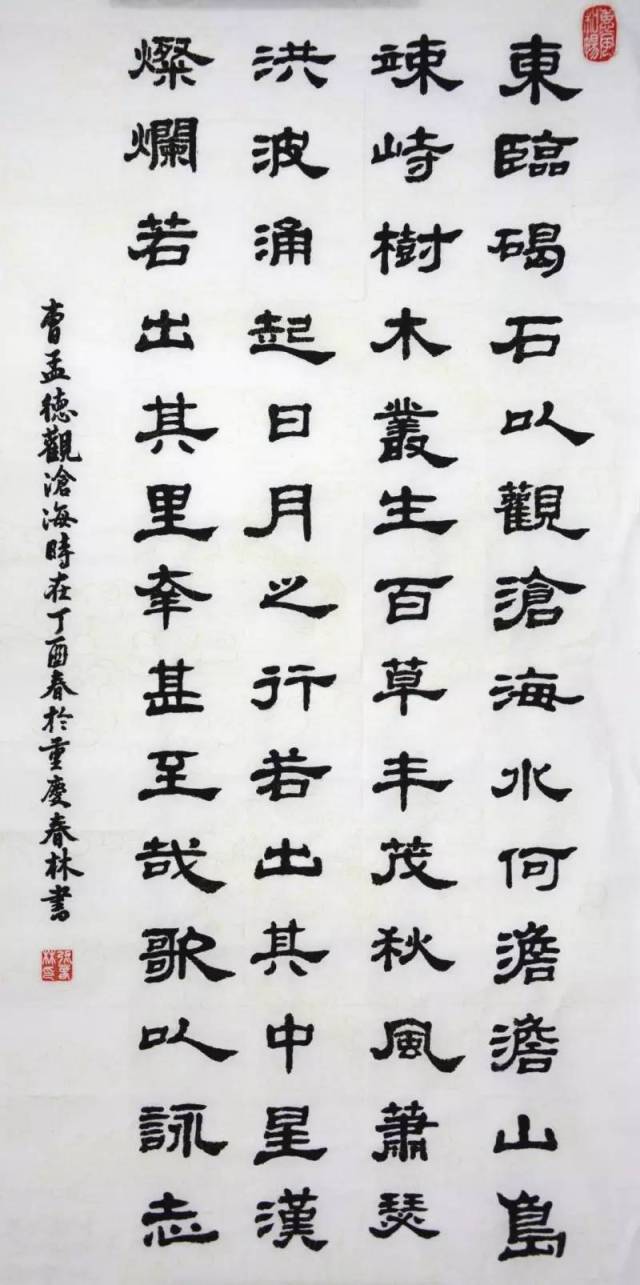 惠風和暢
東臨碣石以觀滄海水何澹澹山島
竦峙樹木叢生百草丰茂秋風蕭瑟
洪波涌起日月之行若出其中星漢
燦爛若出其里幸甚至哉歌以詠志
曹孟德觀滄海時在丁酉春於重慶春林書
張春林印